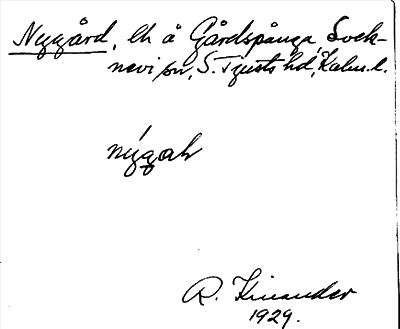 Nygård, lh å Gårdspånga, Lock-
nevi sn, S. Tjusts hd, Kalm. l.
nýgaḷ
R. Kinander
1929.